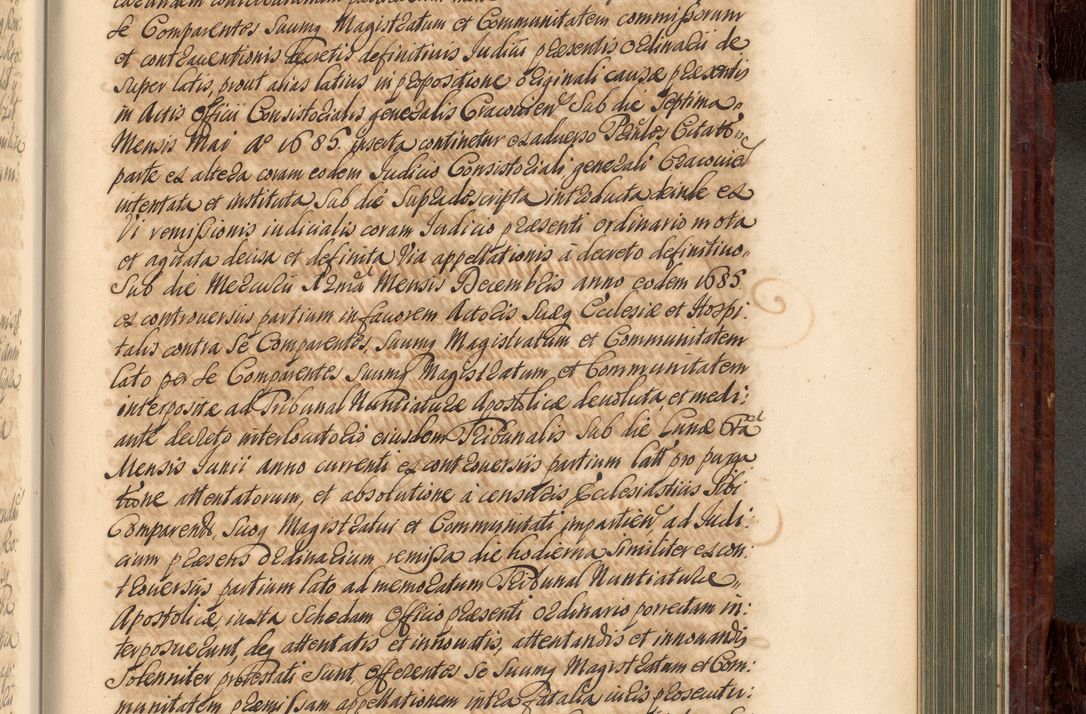 se Comparentes Suumq Magistratum et Communitatem commissorum
et contraventionis decretis definitivis Judicii præsentis Ordinarii de
super latis, prout alias latius in propositione originali causæ præsentis
in Actis Officii Consistorialis generalis Cracovien Sub die Septima
Mensis Mai Aº 1685. inserta continetur ex adverso Partes Citatt
parte ex altera coram eodem Judicio Consistoriali generali Cracovien
intentata et instituta, sub die supradescripta introducta deinde ex
Vi remissionis iudicialis coram Judicio præsenti ordinario mota
et agitata decisa et definita Via appellationis à decreto definitivo
Sub die Mercurii Mensis Decembris anno eodem 1685.
ex controversiis partium in favorem Actoris Suæq Ecclesiæ et Hospi:
talis contra Se Comparentes, Suumq Magistratum et Communitatem
lato per Se Comparentes Suumq Magistratum et Communitatem
interpositæ ad Tribunal Nuntiaturæ Apostolicæ devoluta, et medi:
ante decreto interlocutorio eiusdem Tribunalis sub die Lunæ
Mensis Junii anno currenti ex controversiis partium latt pro purga
tione attentatorum, et absolutione à censuris Ecclesiasticis Sibi
Comparend, Suoq Magistratui et Communitati impartien ad Judi:
cium præsens Ordinarium remissa die hodierna Similiter ex con:
troversiis partium lato ad memoratum Tribunal Nuntiaturæ
Apostolicæ, iuxta Schedam Officio præsenti Ordinario porrectam in:
terposuerunt, deq attentatis et innovatis, attentandis et innovandis
Solenniter protestati Sunt offerentes Se Suumq Magistratum et Com:
munitatem præmissam appellationem intra Fatalia iuris prosecutu: